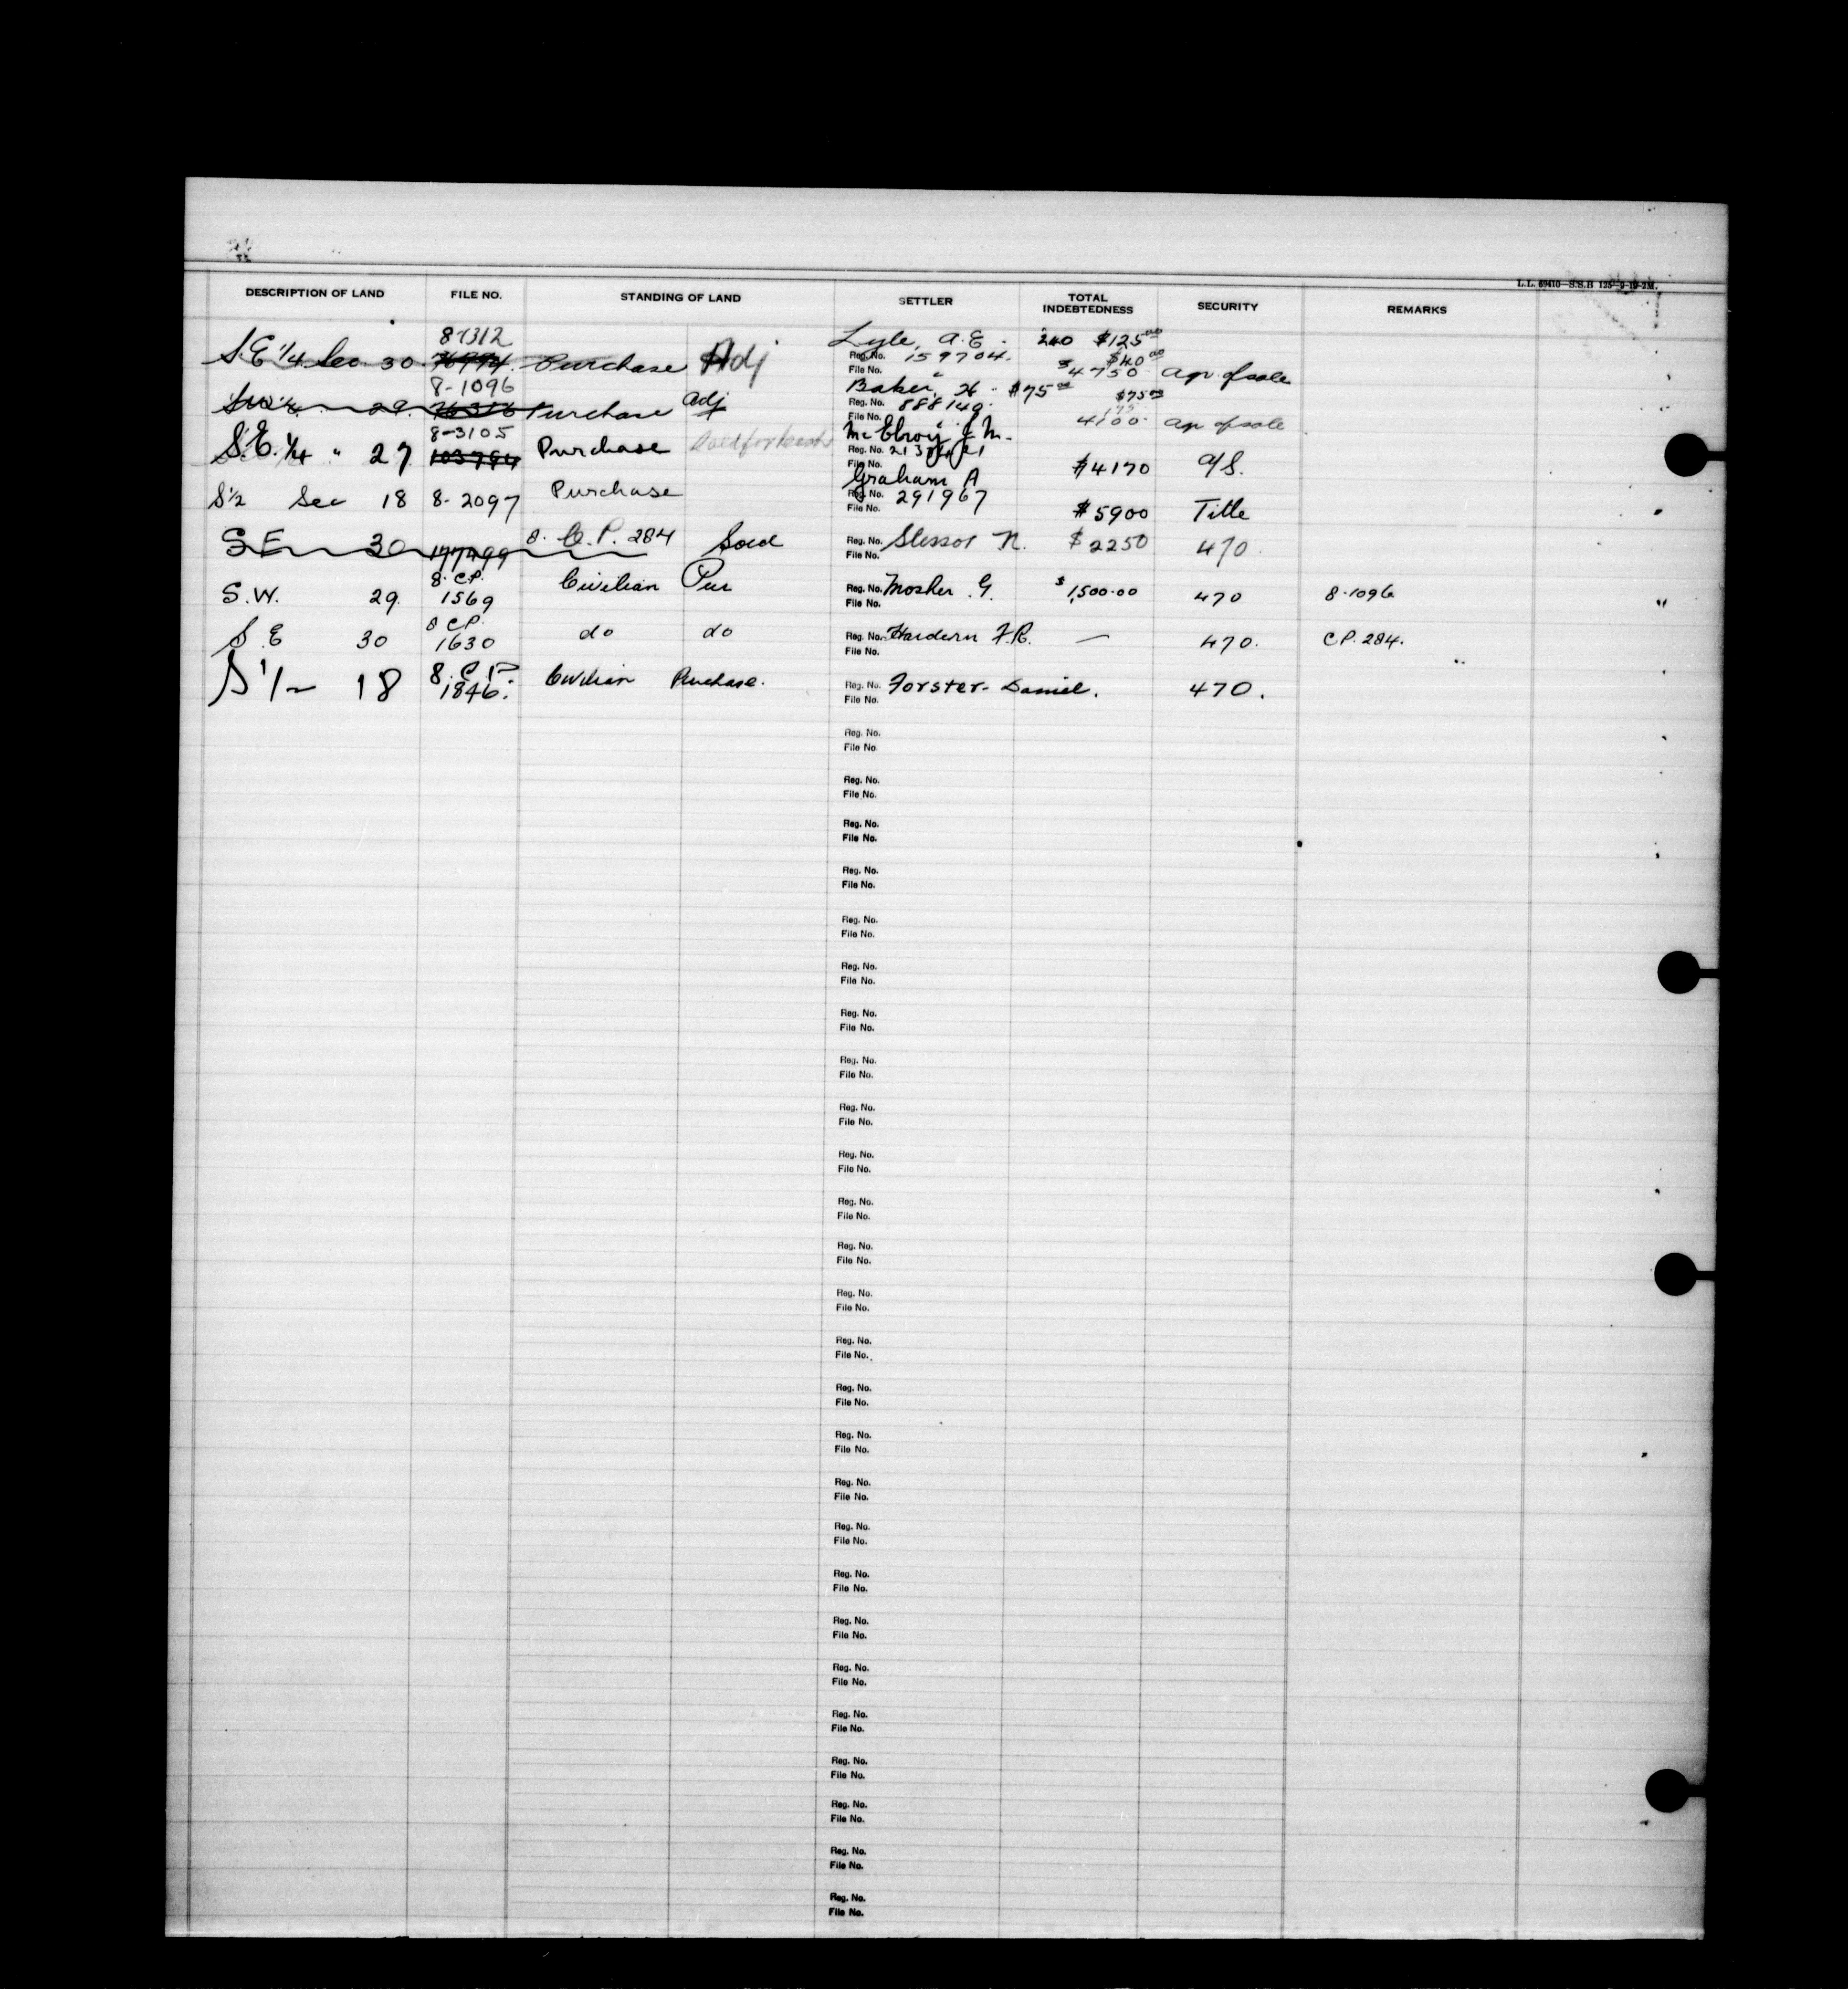 L.L. 69410—S.S.B 125—9-19-2M.
DESCRIPTION OF LAND FILE NO. STANDING OF LAND SETTLER TOTAL INDEBTEDNESS SECURITY REMARKS
8-1312 Lyle, A. E. 240 $125 00
S.E 1/4 Sec 30 Purchase Adj Reg. No. 159704. $40 00
File No. $4750 Agr of sale
8-1096 Baker, H $75 00 $75 00
29. Purchase Adj Reg. No. 888149.
File No. 4100 Agr of sale
8-3105 McElroy J. M.
S.E. 1/4 " 27 103784 Purchase Reg. No.
File No. $4170 A/S.
Graham A
S 1/2 Sec 18 8-2097 Purchase Reg. No. 291967
File No. $5900 Title
SE 30 177499 8. C.P. 284 Sold Reg. No. Slessor N. $2250 470.
File No.
8. C.P.
S.W. 29. 1569 Civilian Pur Reg. No. Mosher G. $1,500.00 470 8-1096
File No.
8 C.P.
S.E 30 1630 do do Reg. No. Hardern F.R. — 470. C.P. 284.
File No.
8. C.P.
S 1/2 18 1846. Civilian Purchase. Reg. No. Forster- Daniel. 470.
File No.
Reg. No.
File No.
Reg. No.
File No.
Reg. No.
File No.
Reg. No.
File No.
Reg. No.
File No.
Reg. No.
File No.
Reg. No.
File No.
Reg. No.
File No.
Reg. No.
File No.
Reg. No.
File No.
Reg. No.
File No.
Reg. No.
File No.
Reg. No.
File No.
Reg. No.
File No.
Reg. No.
File No.
Reg. No.
File No.
Reg. No.
File No.
Reg. No.
File No.
Reg. No.
File No.
Reg. No.
File No.
Reg. No.
File No.
Reg. No.
File No.
Reg. No.
File No.
Reg. No.
File No.
Reg. No.
File No.
Reg. No.
File No.